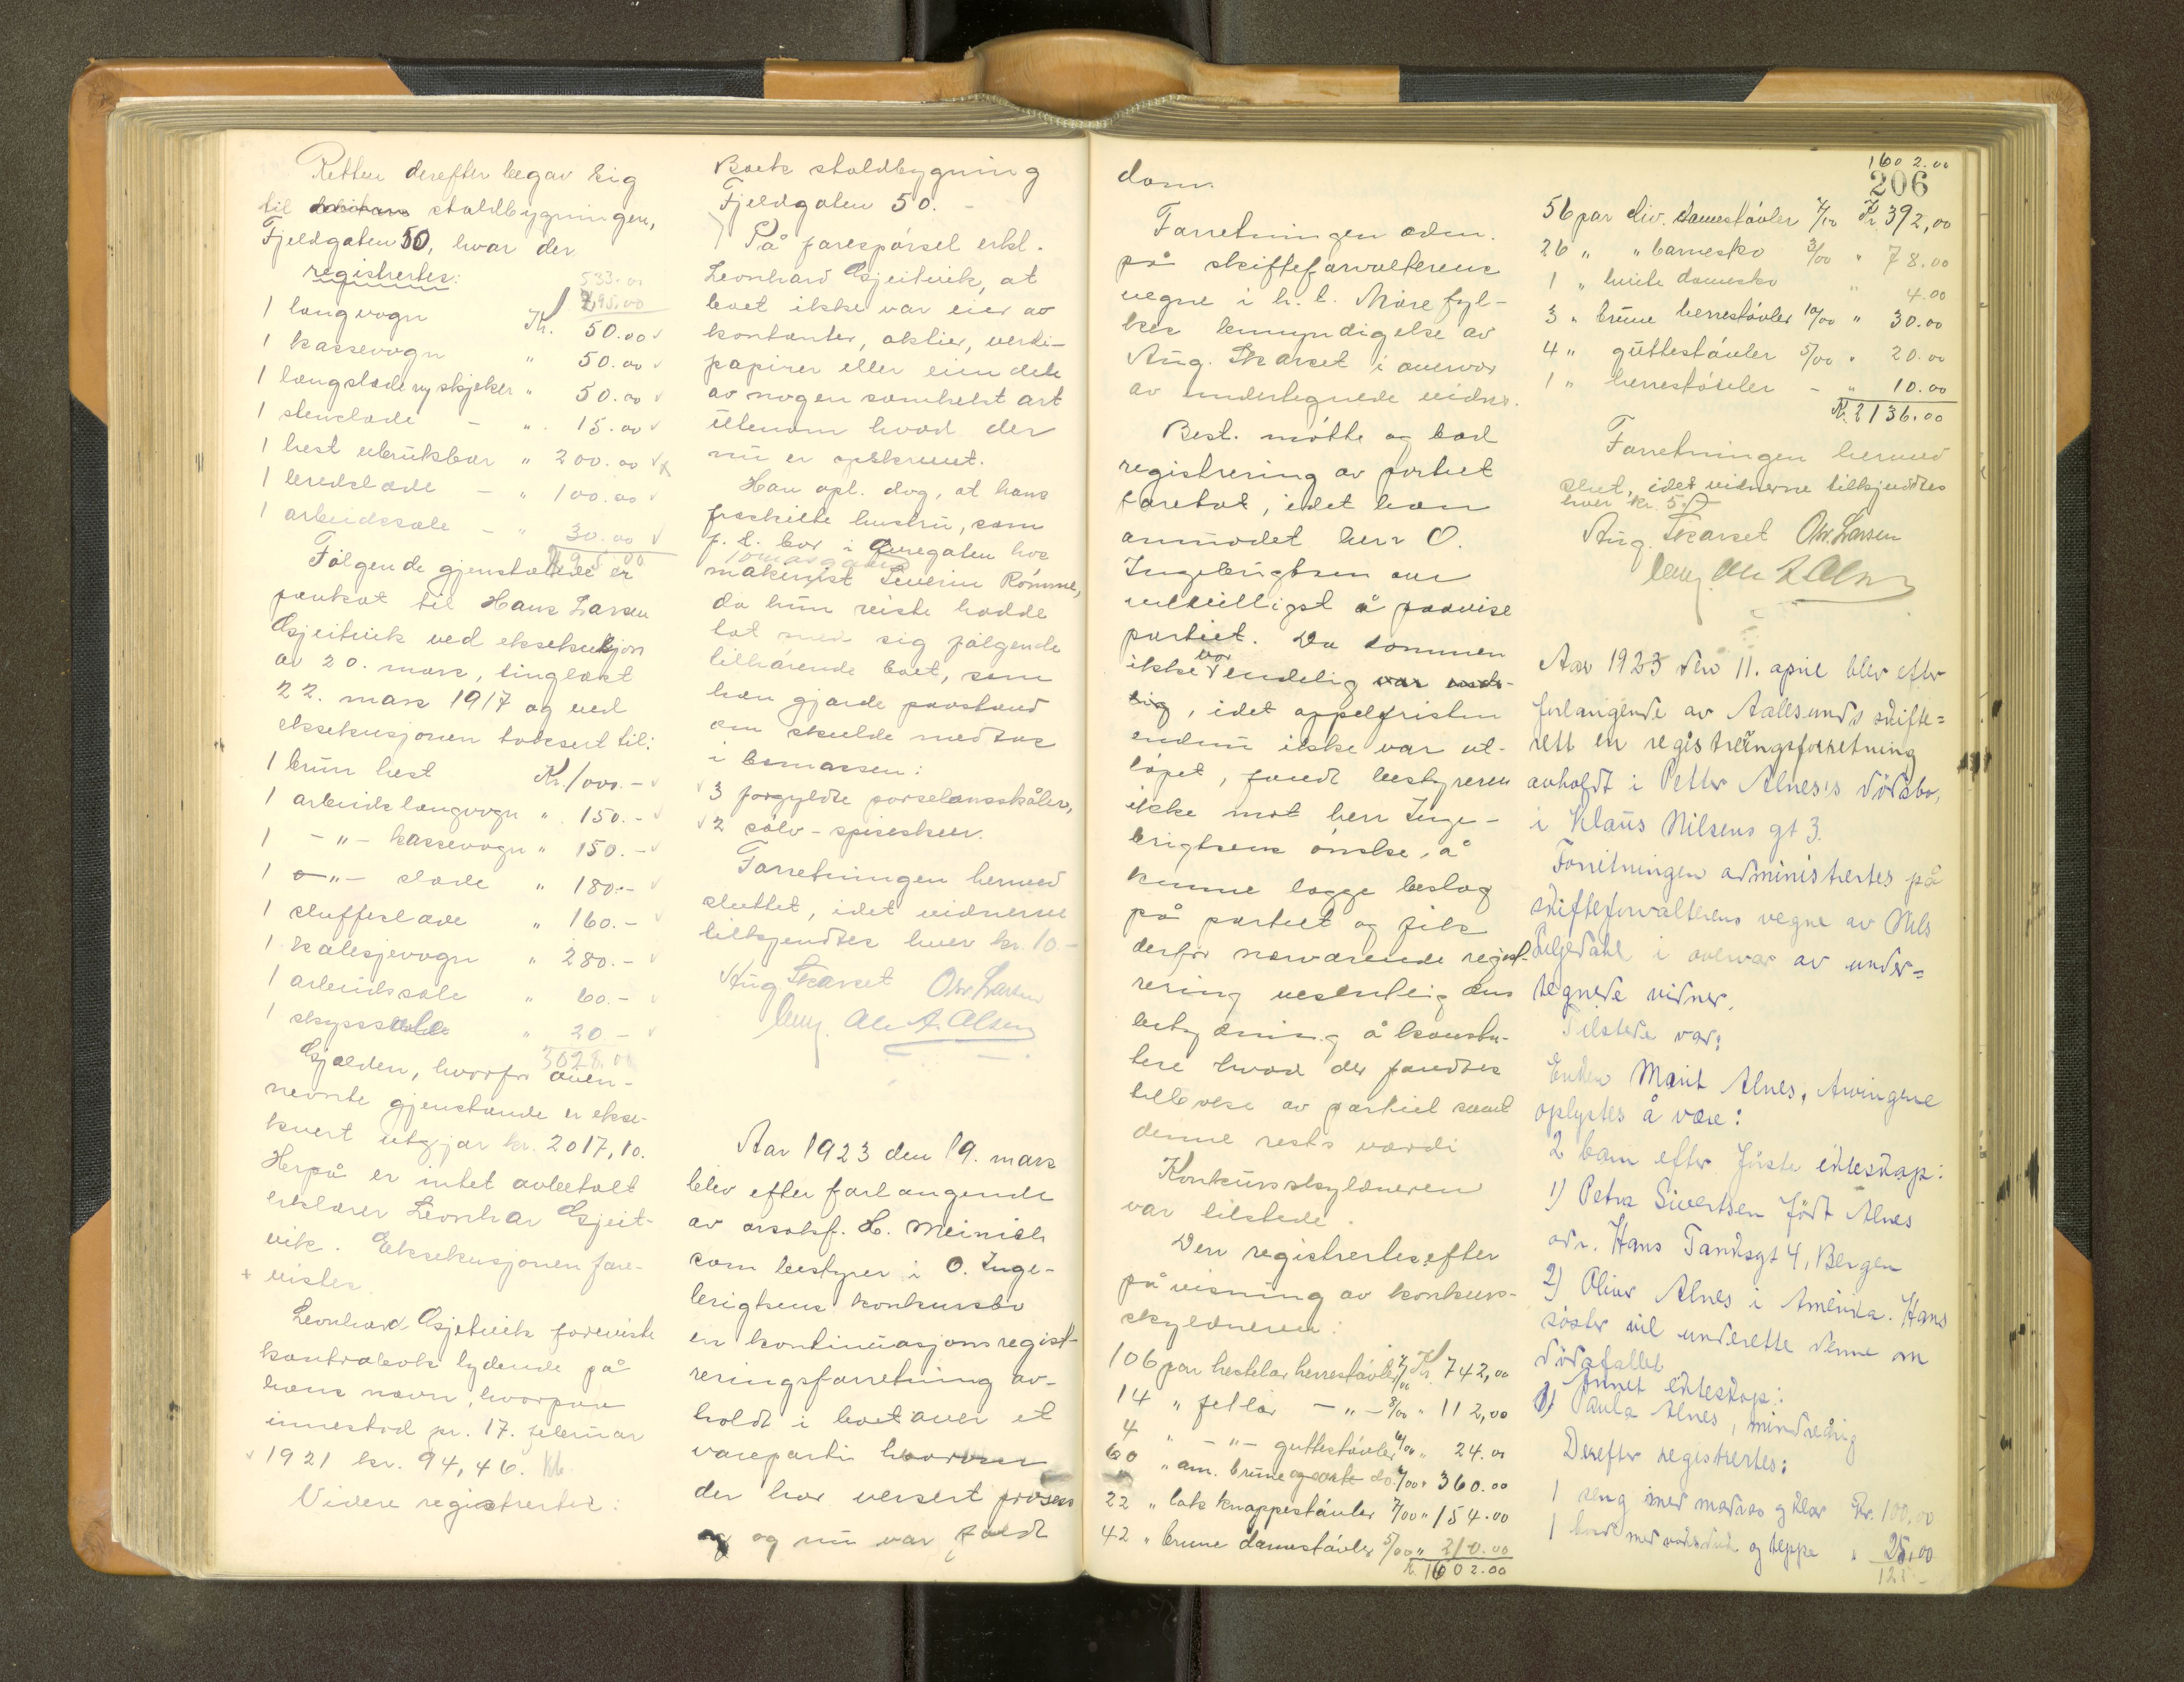 Retten derefter begav sig
til staldbygningen,
Fjeldgaten 50, hvor der
registrertes:
533.00
295.00
1 langvogn Kr. 50.00
1 kassevogn " 50.00
1 langslæde m/skjeker " 50.00
1 stenslæde - " 15.00
1 hest ubrukbar " 200.00
1 bredslæde - " 100.00
1 arbeidssæle - " 30.00
495.00
Følgende gjenstande er
pantsat til Hans Larsen
Gjeitvik ved eksekusjon
av 20. mars, tinglæst
22. mars 1917 og ved
eksekusjonen taksert til:
1 brun hest Kr. 1000.-
1 arbeidslangvogn " 150.-
1 -"- kassevogn " 150.-
1 -"- slæde " 180.-
1 sluffeslæde " 160.-
1 kalesjevogn " 280.-
1 arbeidssæle " 60.-
1 skyssæle " 20-
3028.00
Gjælden, hvorfor oven-
nevnte gjenstande er ekse-
kvert utgjør kr. 2017,10.
Herpå er intet avbetalt
erklærer Leonhar Gjeit-
vik. Eksekusjonen fore-
vistes.
Leonhard Gjeitvik foreviste
kontrabok lydende på
hans navn, hvorpaa
innestod pr. 17. februar
1921 kr. 94,46.
Videre registrertes:
Boets staldbygning
Fjeldgaten 50. -
På forespørsel erkl.
Leonhard Gjeitvik, at
boet ikke var eier av
kontanter, aktier, verdi-
papirer eller eiendele
av nogen somhelst art
utenom hvad der
nu er opskrevet.
Han opl. dog, at hans
fraskilte hustru, som
f. t. bor i hos
makinist Severin Rømme,
da hun reiste hadde
tat med sig følgende
tilhørende boet, som
han gjorde paastand
om skulde medtas
i bomassen:
3 forgyldte porselansskåler,
2 sølv-spiseskeer.
Forretningen hermed
sluttet, idet vidnerne
tilkjendtes hver kr. 10-
Aug Skarset Osv. Larsen
Ole A. Olsen
Aar 1923 den 19. mars
blev efter forlangende
av orsakf. H. Meinich
som bestyrer i O. Inge-
brigtsens konkursbo
en kontinuasjonsregist-
reringsforretning av-
holdt i boet over et
vareparti
der har versert prosess
og og nu var faldt
dom
Forretningen adm.
på skifteforvalterens
vegne i h. t. Møre fyl-
kes bemyndigelse av
Aug. Skarset i overvær
av undertegnede vidner.
Best. møtte og bad
registrering av partiet
foretat, idet han
anmodet herr O.
Ingebrigtsen om
velvilligst å paavise
partiet. Da dommen
ikke var endelig
, idet appelfristen
endnu ikke var ut-
løpet, fandt bestyreren
ikke mot herr Inge-
brigtsens ønske, å
kunne lægge beslag
på partiet og fik
derfor nærværende regist-
rering vesentlig den
betydning å konsta-
tere hvad der fandtes
tilbake av partiet samt
denne rests værdi
Konkursskyldneren
var tilstede.
Den registrertes efter
påvisning av konkurs-
skyldneren:
106 par hestelær herrestøvler 7/00 Kr. 742,00
14 " fetlær -"- 8/00 " 112,00
4 " -"- guttestøvler 6/00 " 24.00
60 " am. brune og sorte do. 6/00 " 360.00
22 " lak knappestøvler 7/00 " 154.00
42 " brune damestøvler 5/00 " 210.00
Kr. 1602.00
1602.00
206
56 par div. damestøvler 7/00 Kr 392,00
26 " " barnesko 3/00 " 78.00
1 " hvite damesko " 4.00
3 " brune herrestøvler 10/00 " 30.00
4 " guttestøvler 5/00 " 20.00
1 " herrestøvler - " 10.00
Kr. 2136.00
Forretningen hermed
slut, idet vidnerne tilkjendtes
hver kr. 5.-
Aug. Skarset Osv. Larsen
Ole A Olsen
Aar 1923 den 11. april blev efter
forlangende av Aalesunds skifte=
rett en registreringsforretning
avholdt i Petter Alnes's dødsbo,
i Klaus Nilsens gt 3.
Forretningen administrertes på
skifteforvalterens vegne av Nils
i overvær av under=
tegnede vidner.
Tilstede var:
Enken Marit Alnes, Arvingene
oplystes å være:
2 barn efter første ekteskap:
1) Petra Sivertsen født Alnes
adr. Hans Tandsgt 4, Bergen
2) Oliver Alnes i Amerika. Hans
søster vil underette denne om
dødsfallet
Annet ekteskap:
1) Paula Alnes, mindreårig
Derefter registrertes:
1 seng med madras og klær Kr. 100,00
1 bord med voksduk og teppe " 25,00
125-